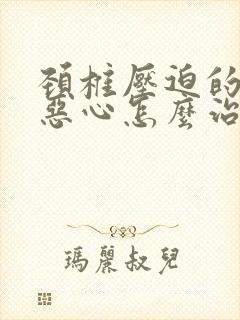 頸椎壓迫的
惡心怎麼治
瑪麗叔兒